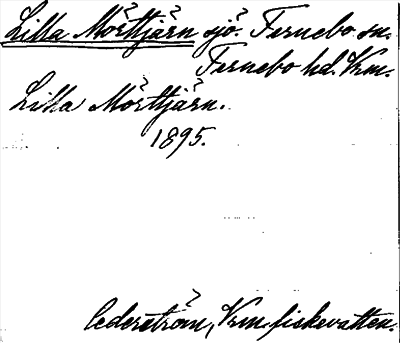 Lilla Mörttjärn sjö. Fernebo sn.
Fernebo hd. Vrm.
Lilla Mörttjärn.
1895.
Cederström, Vrm. fiskevatten.